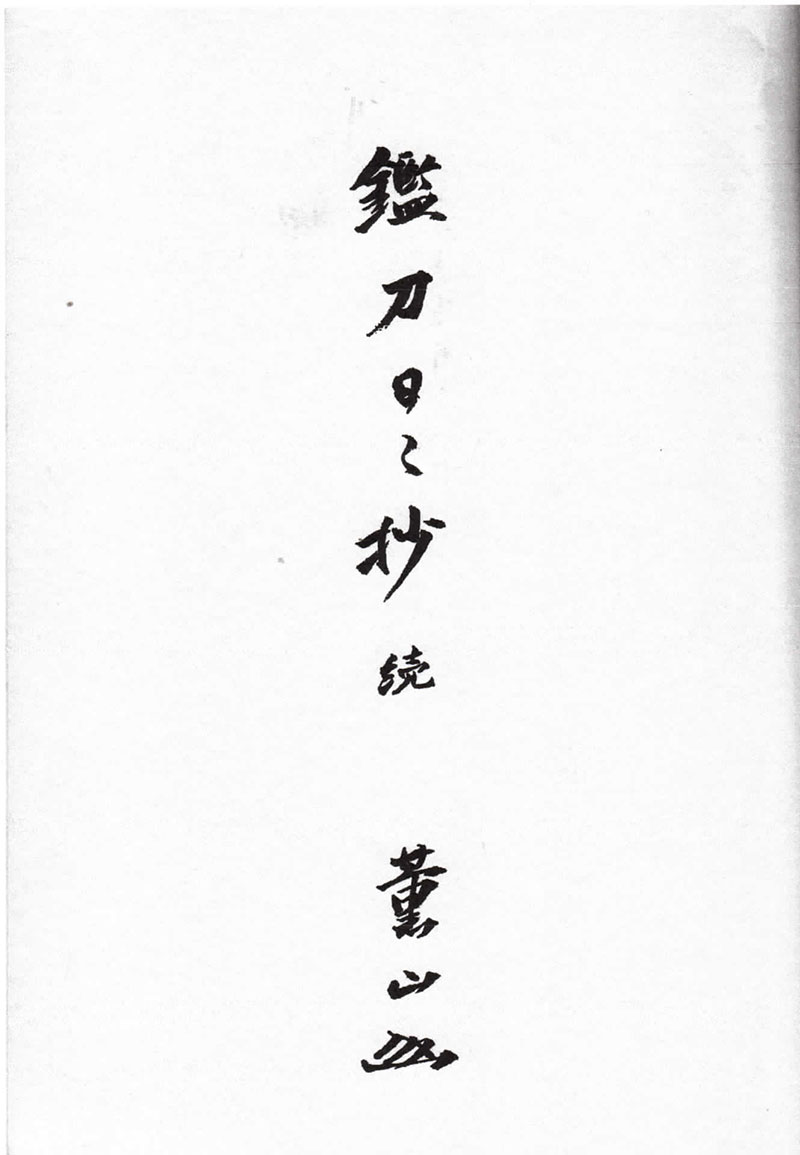 鑑刀日々抄 続 薫山